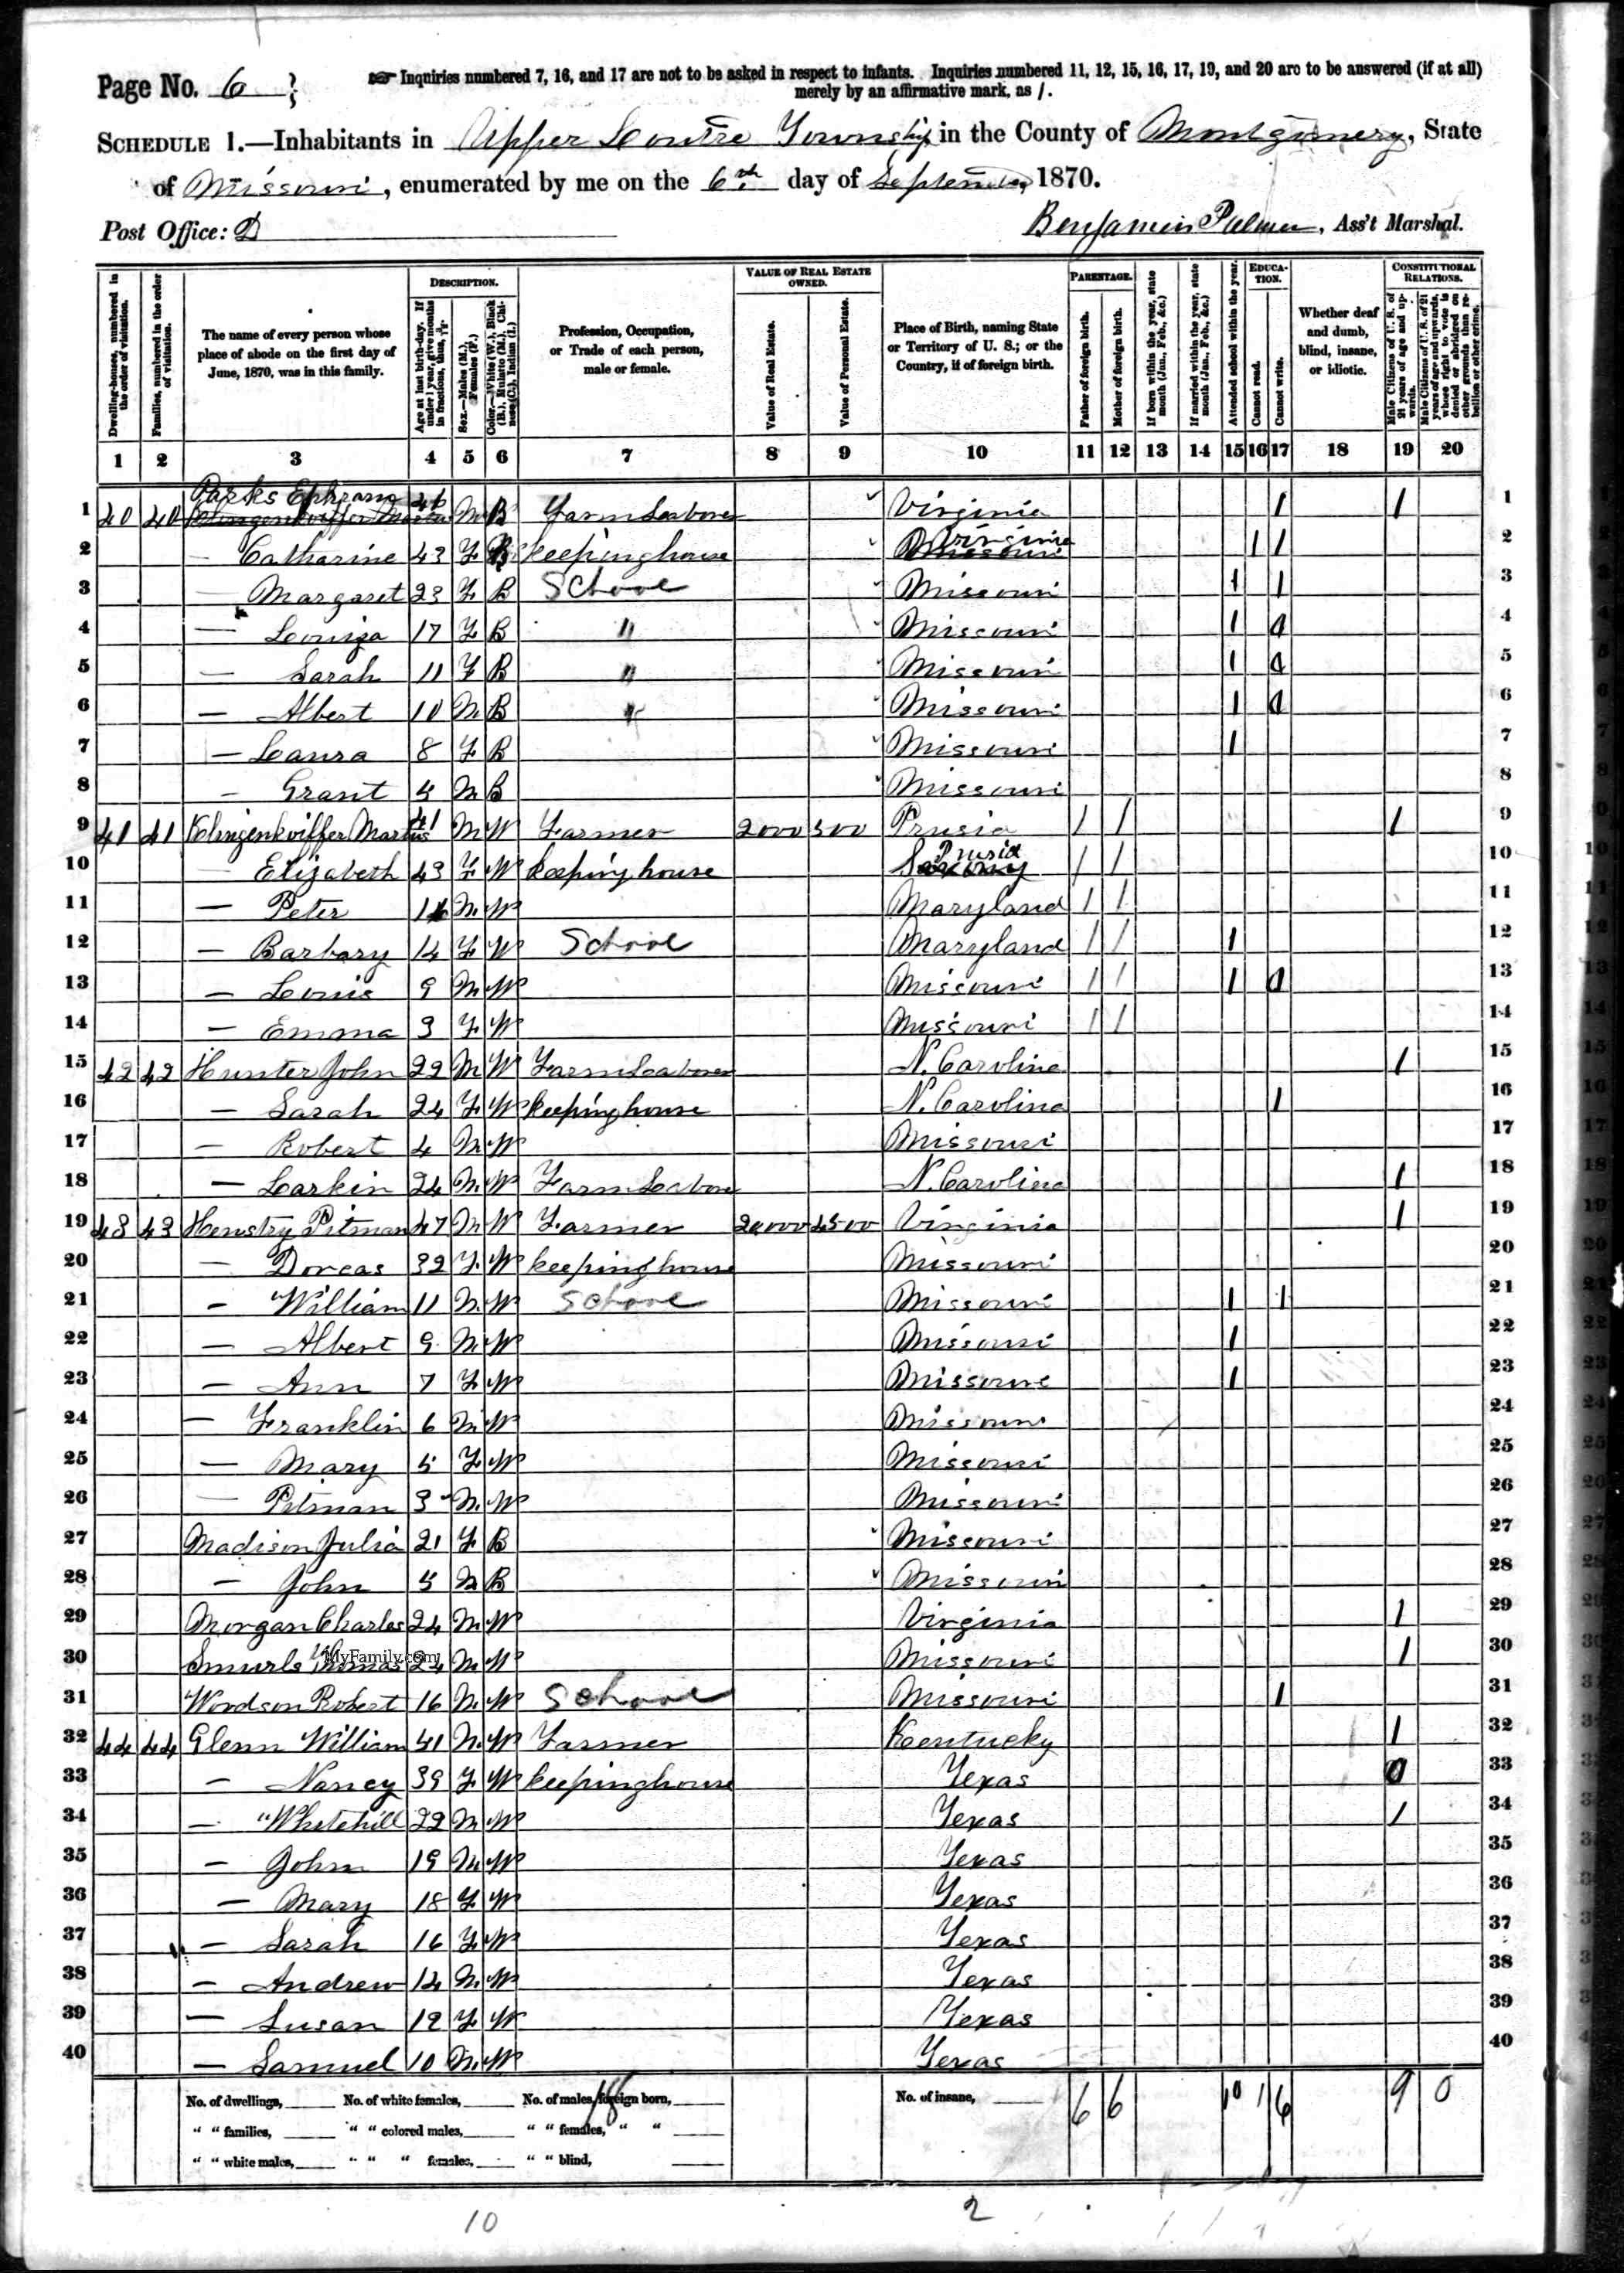 Page No. 6
☞ Inquiries numbered 7, 16, and 17 are not to be asked in respect to infants. Inquiries numbered 11, 12, 15, 16, 17, 19, and 20 are to be answered (if at all)
merely by an affirmative mark, as /.
SCHEDULE 1.—Inhabitants in Upper Loutre Township, in the County of Montgomery, State
of Missouri, enumerated by me on the 6th day of September, 1870.
Post Office: D
Benjamin Palmer, Ass't Marshal.
Dwelling-houses, numbered in the order of visitation.
Families, numbered in the order of visitation.
The name of every person whose place of abode on the first day of June, 1870, was in this family.
DESCRIPTION.
Age at last birth-day. If under 1 year, give months in fractions, thus, 3/12.
Sex.—Males (M.), Females (F.)
Color.—White (W.), Black (B.), Mulatto (M.), Chinese (C.), Indian (I.)
Profession, Occupation, or Trade of each person, male or female.
VALUE OF REAL ESTATE OWNED.
Value of Real Estate.
Value of Personal Estate.
Place of Birth, naming State or Territory of U. S.; or the Country, if of foreign birth.
PARENTAGE.
Father of foreign birth.
Mother of foreign birth.
If born within the year, state month (Jan., Feb., &c.)
If married within the year, state month (Jan., Feb., &c.)
Attended school within the year.
EDUCATION.
Cannot read.
Cannot write.
Whether deaf and dumb, blind, insane, or idiotic.
CONSTITUTIONAL RELATIONS.
Male Citizens of U. S. of 21 years of age and upwards.
Male Citizens of U. S. of 21 years of age and upwards, whose right to vote is denied or abridged on other grounds than rebellion or other crime.
1 2 3 4 5 6 7 8 9 10 11 12 13 14 15 16 17 18 19 20
1 40 40 Parks Ephram M B Farm Laborer Virginia 1 1 1
2 — Catharine 43 F B Keeping house Virginia 1 1 2
3 — Margaret 23 F B School Missouri 1 1 3
4 — Louiza 17 F B " Missouri 1 4
5 — Sarah 11 F B " Missouri 1 5
6 — Albert 10 M B " Missouri 1 6
7 — Laura 8 F B Missouri 1 7
8 — Grant 5 M B Missouri 8
9 41 41 Klingenkviffer Martus 41 M W Farmer 2000 500 Prusia 1 1 1 9
10 — Elizabeth 43 F W Keeping house Prusia 1 1 10
11 — Peter M W Maryland 1 1 11
12 — Barbary 14 F W School Maryland 1 1 1 12
13 — Louis 9 M W Missouri 1 1 1 13
14 — Emma 3 F W Missouri 1 1 14
15 42 42 Hunter John 22 M W Farm Laborer N. Carolina 1 15
16 — Sarah 24 F W Keeping house N. Carolina 1 16
17 — Robert 4 M W Missouri 17
18 — Larkin 24 M W Farm Labore N. Carolina 1 18
19 43 43 Henstry Pitman 47 M W Farmer 20,000 4500 Virginia 1 19
20 — Dorcas 32 F W Keeping house Missouri 20
21 — William 11 M W School Missouri 1 1 21
22 — Albert 9 M W Missouri 1 22
23 — Ann 7 F W Missouri 1 23
24 — Franklin 6 M W Missouri 24
25 — Mary 5 F W Missouri 25
26 — Pitman 3 M W Missouri 26
27 Madison Julia 21 F B Missouri 27
28 — John 5 M B Missouri 28
29 Morgan Charles 24 M W Virginia 1 29
30 Smurls Thomas 24 M W Missouri 1 30
MyFamily.com
31 Woodson Robert 16 M W School Missouri 1 31
32 44 44 Glenn William 41 M W Farmer Kentucky 1 32
33 — Nancy 39 F W Keeping house Texas 33
34 — Whitehill 22 M W Texas 1 34
35 — John 19 M W Texas 35
36 — Mary 18 F W Texas 36
37 — Sarah 16 F W Texas 37
38 — Andrew 14 M W Texas 38
39 — Susan 12 F W Texas 39
40 — Samuel 10 M W Texas 40
No. of dwellings, No. of white females, No. of males, foreign born, No. of insane, 6 6 10 1 6 9 0
" " families, " " colored males, " " females, " "
" " white males, " " " females, " " blind,
10 2